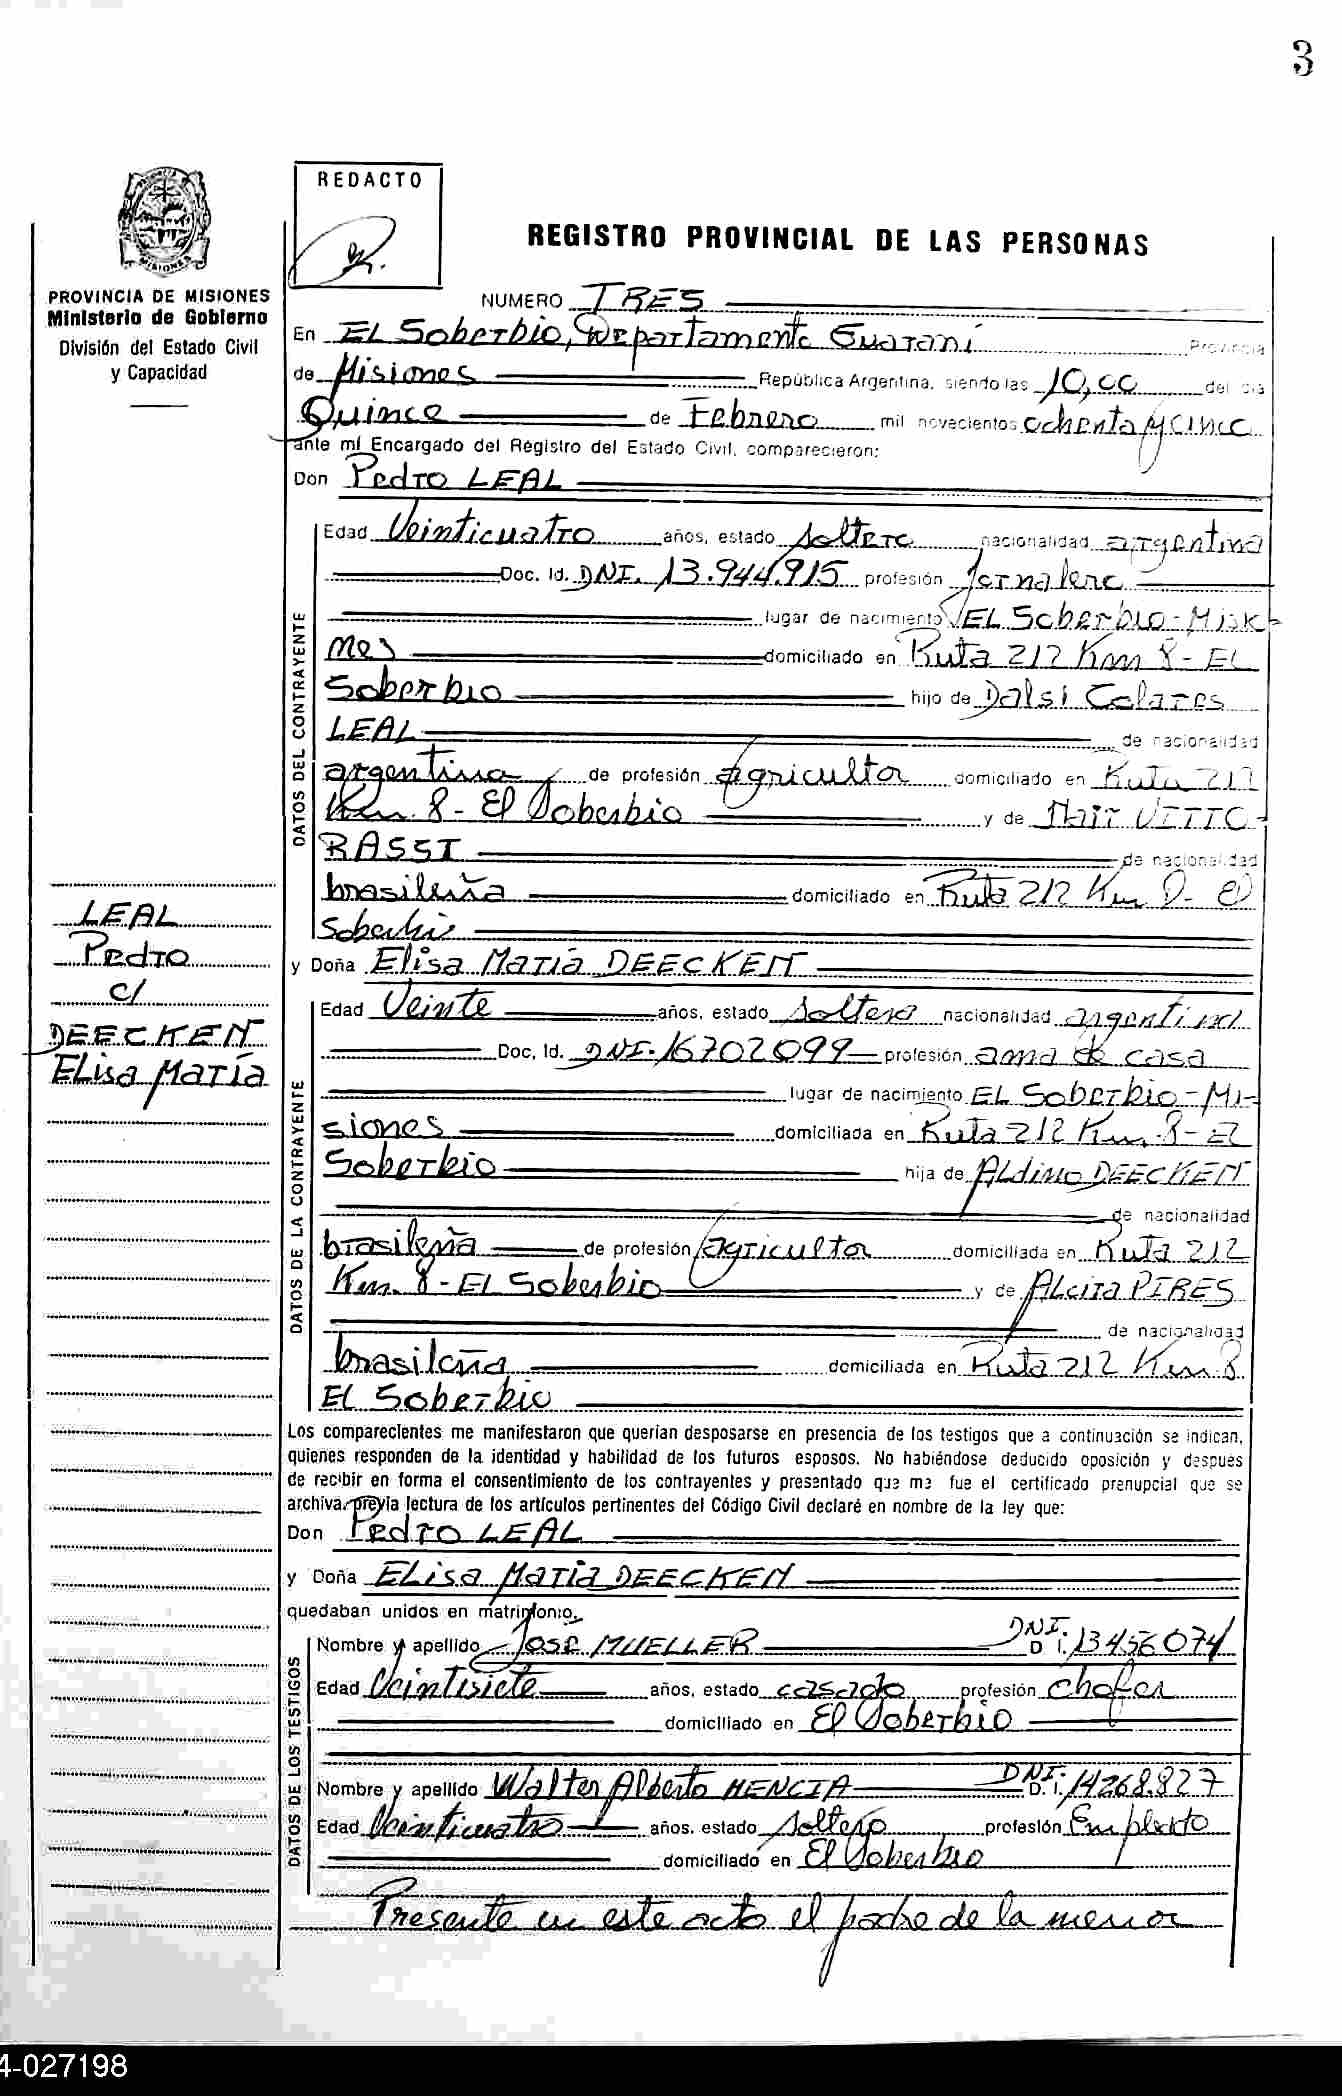 3
REDACTO
MISIONES
REGISTRO PROVINCIAL DE LAS PERSONAS
PROVINCIA DE MISIONES
Ministerio de Gobierno
División del Estado Civil
y Capacidad
NUMERO TRES
En EL Soberbio, Departamento Guaraní Provincia
de Misiones República Argentina, siendo las 10,00 del día
Quince de Febrero mil novecientos ochenta y cinco
ante mí Encargado del Registro del Estado Civil, comparecieron:
Don Pedro LEAL
DATOS DEL CONTRAYENTE
Edad Veinticuatro años, estado soltero nacionalidad argentina
Doc. Id. DNI. 13.944.915 profesión Jornalero
lugar de nacimiento EL Soberbio-Misio-
nes domiciliado en Ruta 212 Km 8 - EL
Soberbio hijo de Dalsi Colares
LEAL de nacionalidad
argentina de profesión agricultor domiciliado en Ruta 212
Km. 8 - El Soberbio y de
RASSI de nacionalidad
brasileña domiciliado en Ruta 212 Km 8- El
Soberbio
y Doña Elisa María DEECKEN
DATOS DE LA CONTRAYENTE
Edad Veinte años, estado soltera nacionalidad argentina
Doc. Id. DNI. 16702099 profesión ama de casa
lugar de nacimiento EL Soberbio - Mi-
siones domiciliada en Ruta 212 Km. 8 - EL
Soberbio hija de ALdino DEECKEN
de nacionalidad
brasileña de profesión agricultor domiciliada en Ruta 212
Km. 8 - El Soberbio y de ALcira PIRES
de nacionalidad
brasileña domiciliada en Ruta 212 Km 8
EL Soberbio
LEAL
Pedro
c/
DEECKEN
ELisa María
Los comparecientes me manifestaron que querían desposarse en presencia de los testigos que a continuación se indican,
quienes responden de la identidad y habilidad de los futuros esposos. No habiéndose deducido oposición y después
de recibir en forma el consentimiento de los contrayentes y presentado que me fue el certificado prenupcial que se
archiva, previa lectura de los artículos pertinentes del Código Civil declaré en nombre de la ley que:
Don Pedro LEAL
y Doña ELisa María DEECKEN
quedaban unidos en matrimonio.
DATOS DE LOS TESTIGOS
Nombre y apellido José MUELLER DNI. D. I. 13456074
Edad Veintisiete años, estado casado profesión chofer
domiciliado en El Soberbio
Nombre y apellido Walter Alberto MENCIA DNI. D. I. 14268.827
Edad Veinticuatro años, estado soltero profesión Empleado
domiciliado en El Soberbio
Presente en este acto el padre de la menor
4-027198